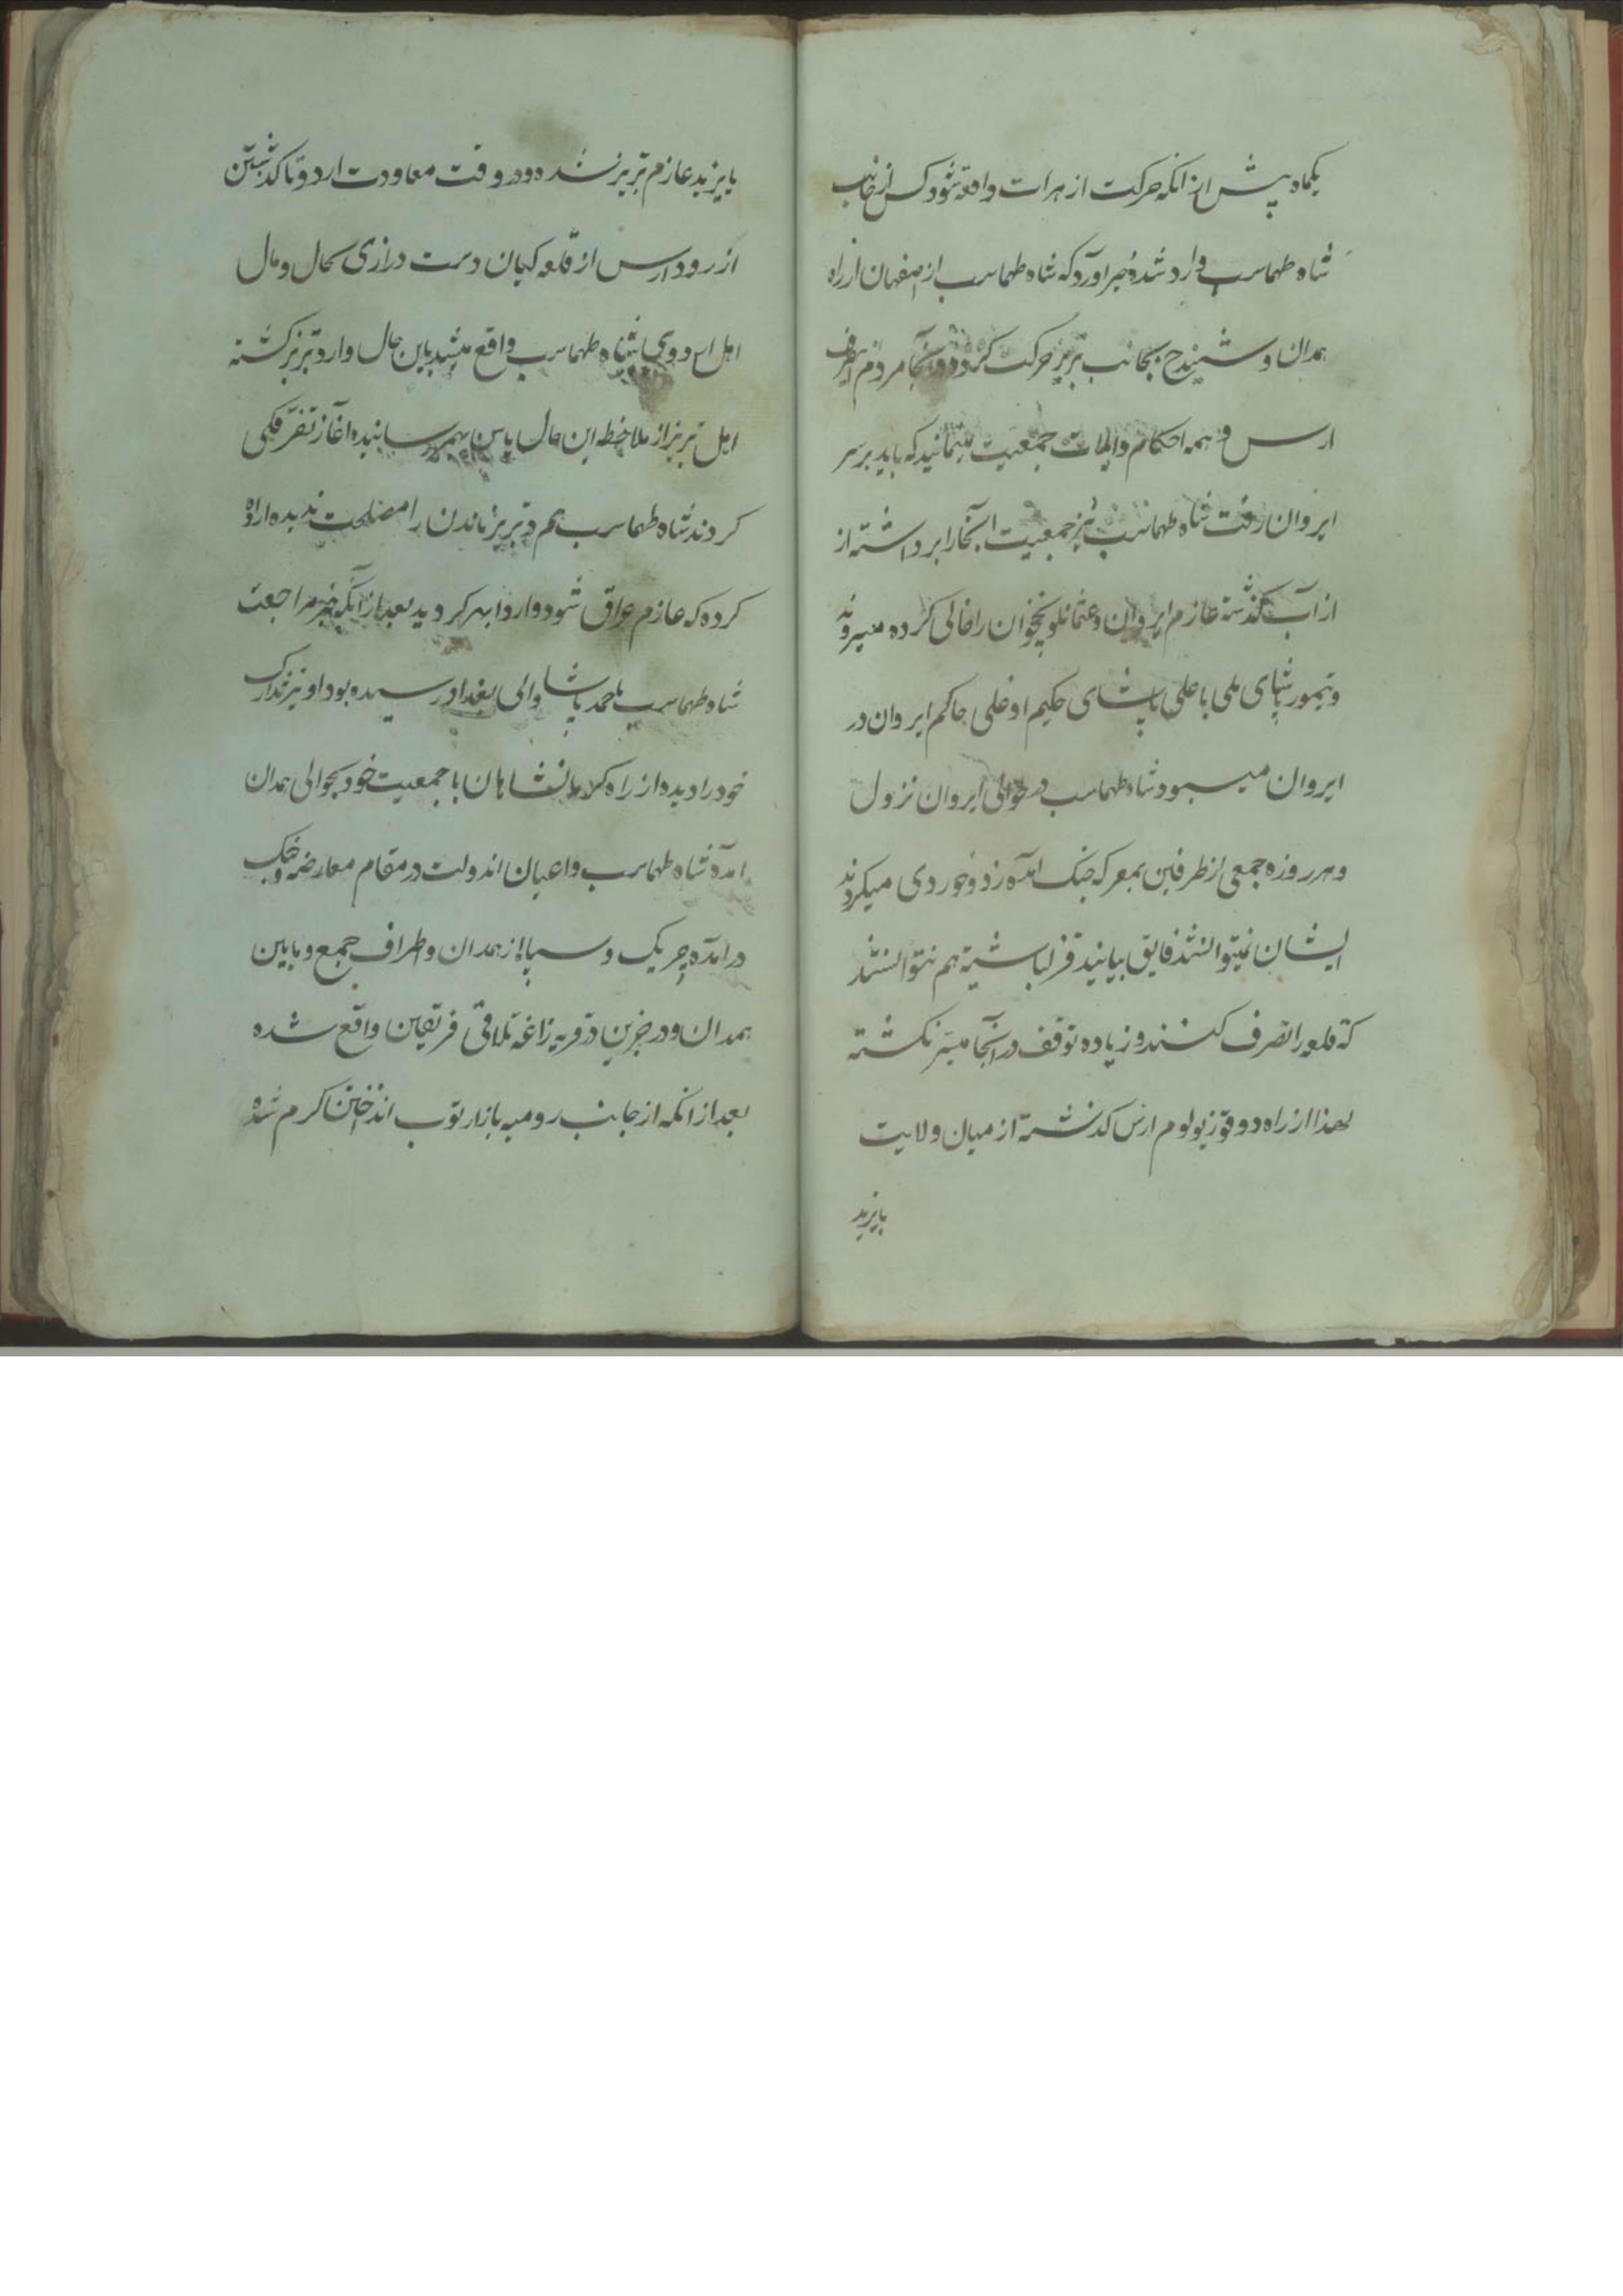 یکماه پیش از انکه حرکت از هرات واقع شود کس از جانب
شاه طهماسب وارد شده خبر اورد که شاه طهماسب از اصفهان از راه
همدان و سنندج بجانب تبریز حرکت کرده و در آنجا مردم
ارس و همه احکام و ایلات جمعیت مینمانید که باید بر سر
ایروان رفت شاه طهماسب نیز جمعیت انجا را برداشته از
از آب گذشته عازم ایروان و عثمانلو نخجوان را خالی کرده میروند
و تیمور پاشای ملی با علی پاشای حکیم اوغلی حاکم ایروان در
ایروان میبود شاه طهماسب در حوالی ایروان نزول
و هر روزه جمعی از طرفین بمعرکه جنک امده زد و خوردی میکردند
ایشان نمیتوانستند فایق بیایند قزلباشیه هم نتوانستند
که قلعه را تصرف کنند و زیاده توقف در آنجا میسر نکشته
لهذا از راه دوقوز بولوم ارس کذشته از میان ولایت
بایزید
بایزید عازم تبریز شده و در وقت معاودت اردو تا کذشتن
از رود ارس از قلعه کیان دست درازی بحال و مال
اهل اردوی شاه طهماسب واقع میشد باین حال وارد تبریز کشته
اهل تبریز از ملاحظه این حال یاس بهم رسانیده آغاز تفرقکی
کردند شاه طهماسب هم در تبریز ماندن را مصلحت ندیده اراده
کرده که عازم عراق شود وارد ابهر کردید بعد از آنکه خبر مراجعت
شاه طهماسب باحمد پاشا والی بغداد رسیده بود او نیز تدارک
خود را دیده از راه کرمانشاهان با جمعیت خود بحوالی همدان
امده شاه طهماسب و اعیان اندولت در مقام معارضه و جنک
در امده چریک و سپاه از همدان و اطراف جمع و مابین
همدان و درجزین در قریه زاغه تلاقی فریقین واقع شده
بعد از انکه از جانب رومیه بازار توپ انداختن کرم شده